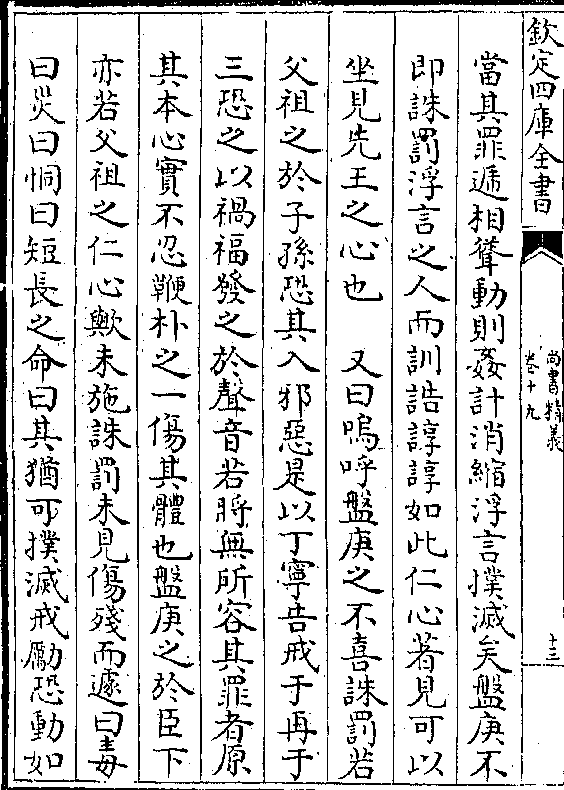 欽定四庫全書
尚書精義
卷十九
十三
當其罪遞相聳動則姦計消縮浮言撲滅矣盤庚不
即誅罰浮言之人而訓誥諄諄如此仁心著見可以
坐見先王之心也　又曰嗚呼盤庚之不喜誅罰若
父祖之於子孫恐其入邪惡是以丁寧告戒于再于
三恐之以禍福發之於聲音若將無所容其罪者原
其本心實不忍鞭朴之一傷其體也盤庚之於臣下
亦若父祖之仁心歟未施誅罰未見傷殘而遽曰毒
曰災曰恫曰短長之命曰其猶可撲滅戒勵恐動如